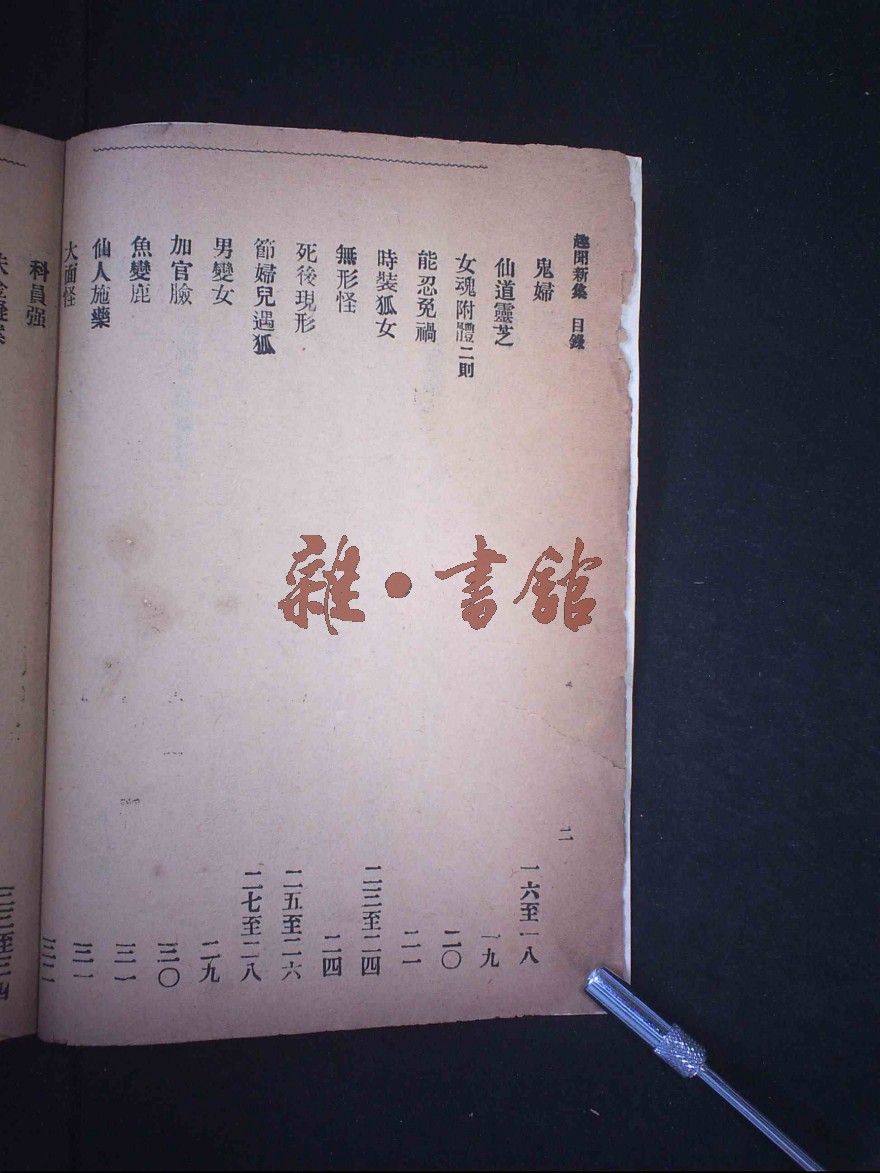 趣聞新集 目錄 二
鬼婦 一六至一八
仙道靈芝 一九
女魂附體二則 二〇
能忍免禍 二一
時裝狐女 二三至二四
無形怪 二四
死後現形 二五至二六
節婦兒遇狐 二七至二八
男變女 二九
加官臉 三〇
魚變鹿 三一
仙人施藥 三一
大面怪 三二
科員强
雜·書館